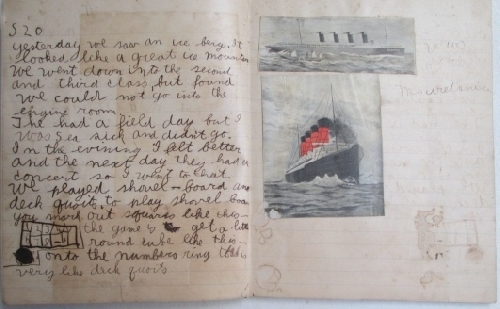 S 20
yesterday we saw an ice berg. It
looked like a great ice mountain
We went down into the second
and third class but found
we could not go into the
engine room
The had a field day but I
was sea sick and didn't go.
In the evening I felt better
and the next day they had a
concert so I went to that.
We played shovel-board and
deck quoit. to play shovel boar
you mark out squares like this-
the game is get a
round tube like this-
onto the numbers ring
very like deck quoits